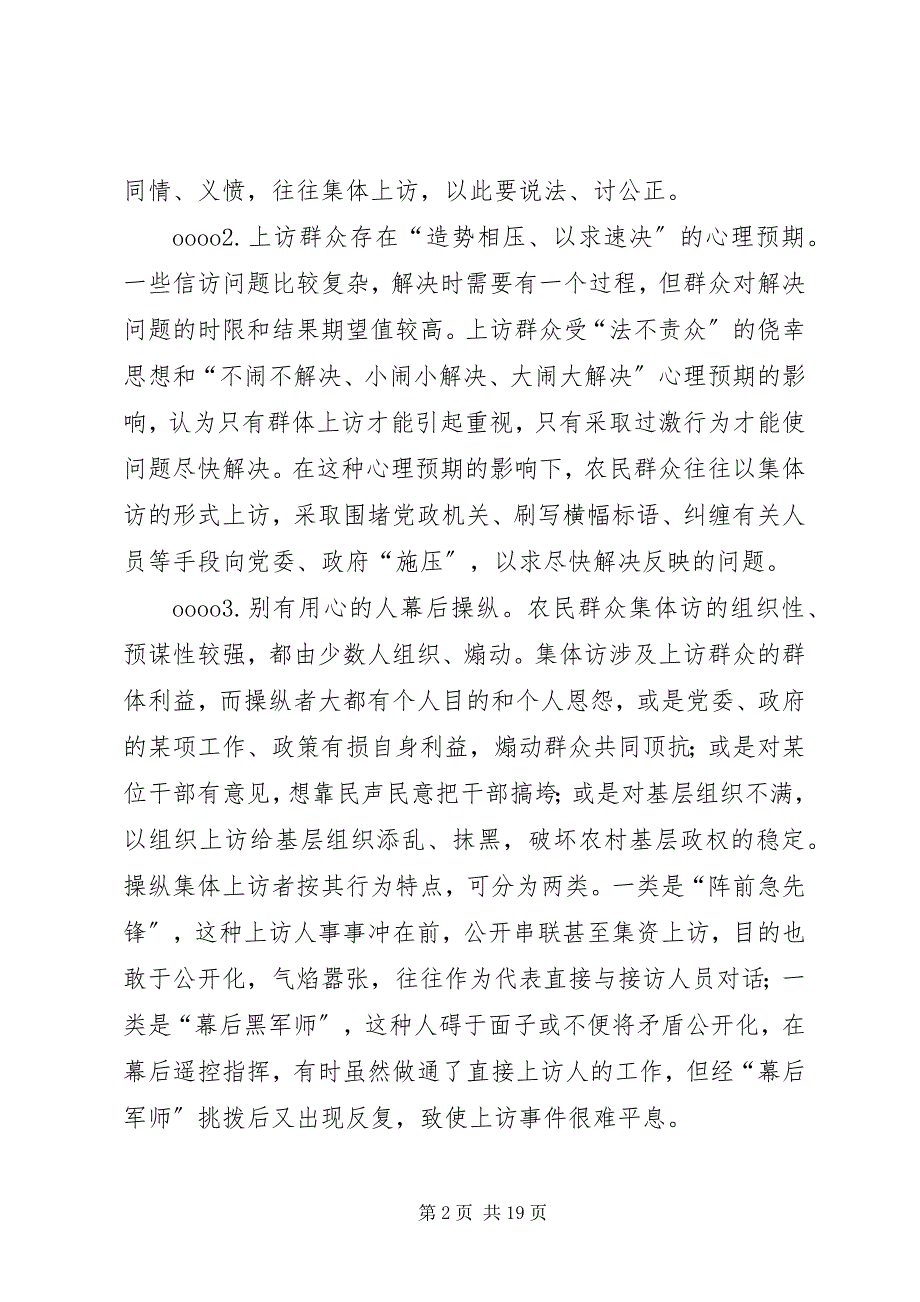 同情、义愤，往往集体上访，以此要说法、讨公正。
oooo2.上访群众存在“造势相压、以求速决〞的心理预期。
一些信访问题比较复杂，解决时需要有一个过程，但群众对解决
问题的时限和结果期望值较高。上访群众受“法不责众〞的侥幸
思想和“不闹不解决、小闹小解决、大闹大解决〞心理预期的影
响，认为只有群体上访才能引起重视，只有采取过激行为才能使
问题尽快解决。在这种心理预期的影响下，农民群众往往以集体
访的形式上访，采取围堵党政机关、刷写横幅标语、纠缠有关人
员等手段向党委、政府“施压〞，以求尽快解决反映的问题。
oooo3.别有用心的人幕后操纵。农民群众集体访的组织性、
预谋性较强，都由少数人组织、煽动。集体访涉及上访群众的群
体利益，而操纵者大都有个人目的和个人恩怨，或是党委、政府
的某项工作、政策有损自身利益，煽动群众共同顶抗；或是对某
位干部有意见，想靠民声民意把干部搞垮；或是对基层组织不满，
以组织上访给基层组织添乱、抹黑，破坏农村基层政权的稳定。
操纵集体上访者按其行为特点，可分为两类。一类是“阵前急先
锋〞，这种上访人事事冲在前，公开串联甚至集资上访，目的也
敢于公开化，气焰嚣张，往往作为代表直接与接访人员对话；一
类是“幕后黑军师〞，这种人碍于面子或不便将矛盾公开化，在
幕后遥控指挥，有时虽然做通了直接上访人的工作，但经“幕后
军师〞挑拨后又出现反复，致使上访事件很难平息。
第 2 页 共 19 页